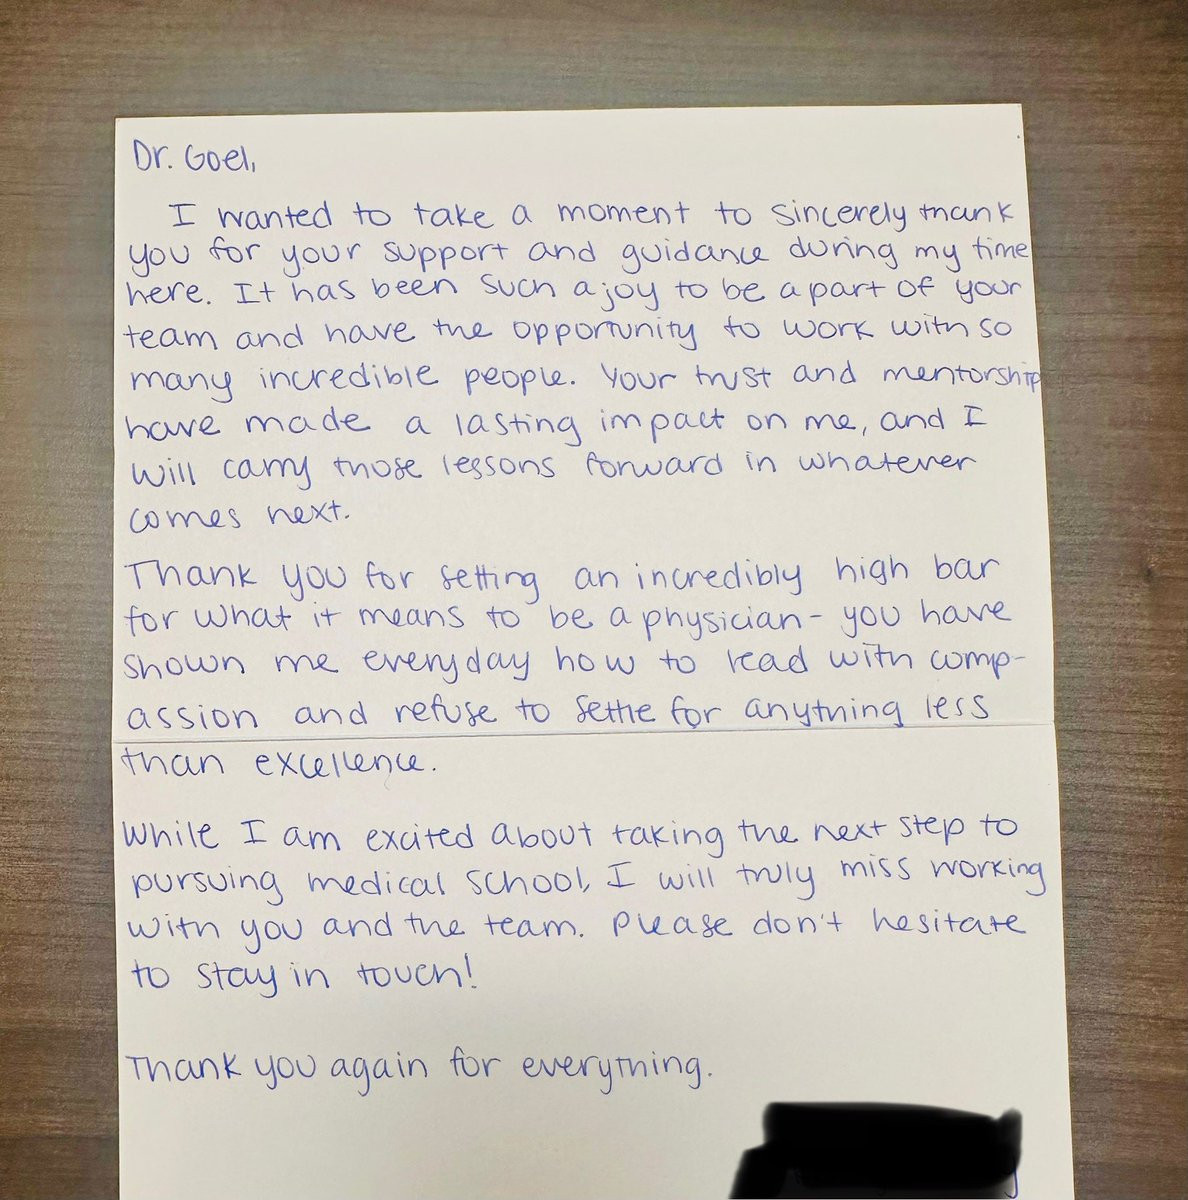 Dr. Goel,
I wanted to take a moment to sincerely thank
you for your support and guidance during my time
here. It has been such a joy to be a part of your
team and have the opportunity to work with so
many incredible people. Your trust and mentorship
have made a lasting impact on me, and I
will carry those lessons forward in whatever
comes next.
Thank you for setting an incredibly high bar
for what it means to be a physician - you have
shown me everyday how to lead with comp-
assion and refuse to settle for anything less
than excellence.
While I am excited about taking the next step to
pursuing medical school, I will truly miss working
with you and the team. Please don't hesitate
to stay in touch!
Thank you again for everything.